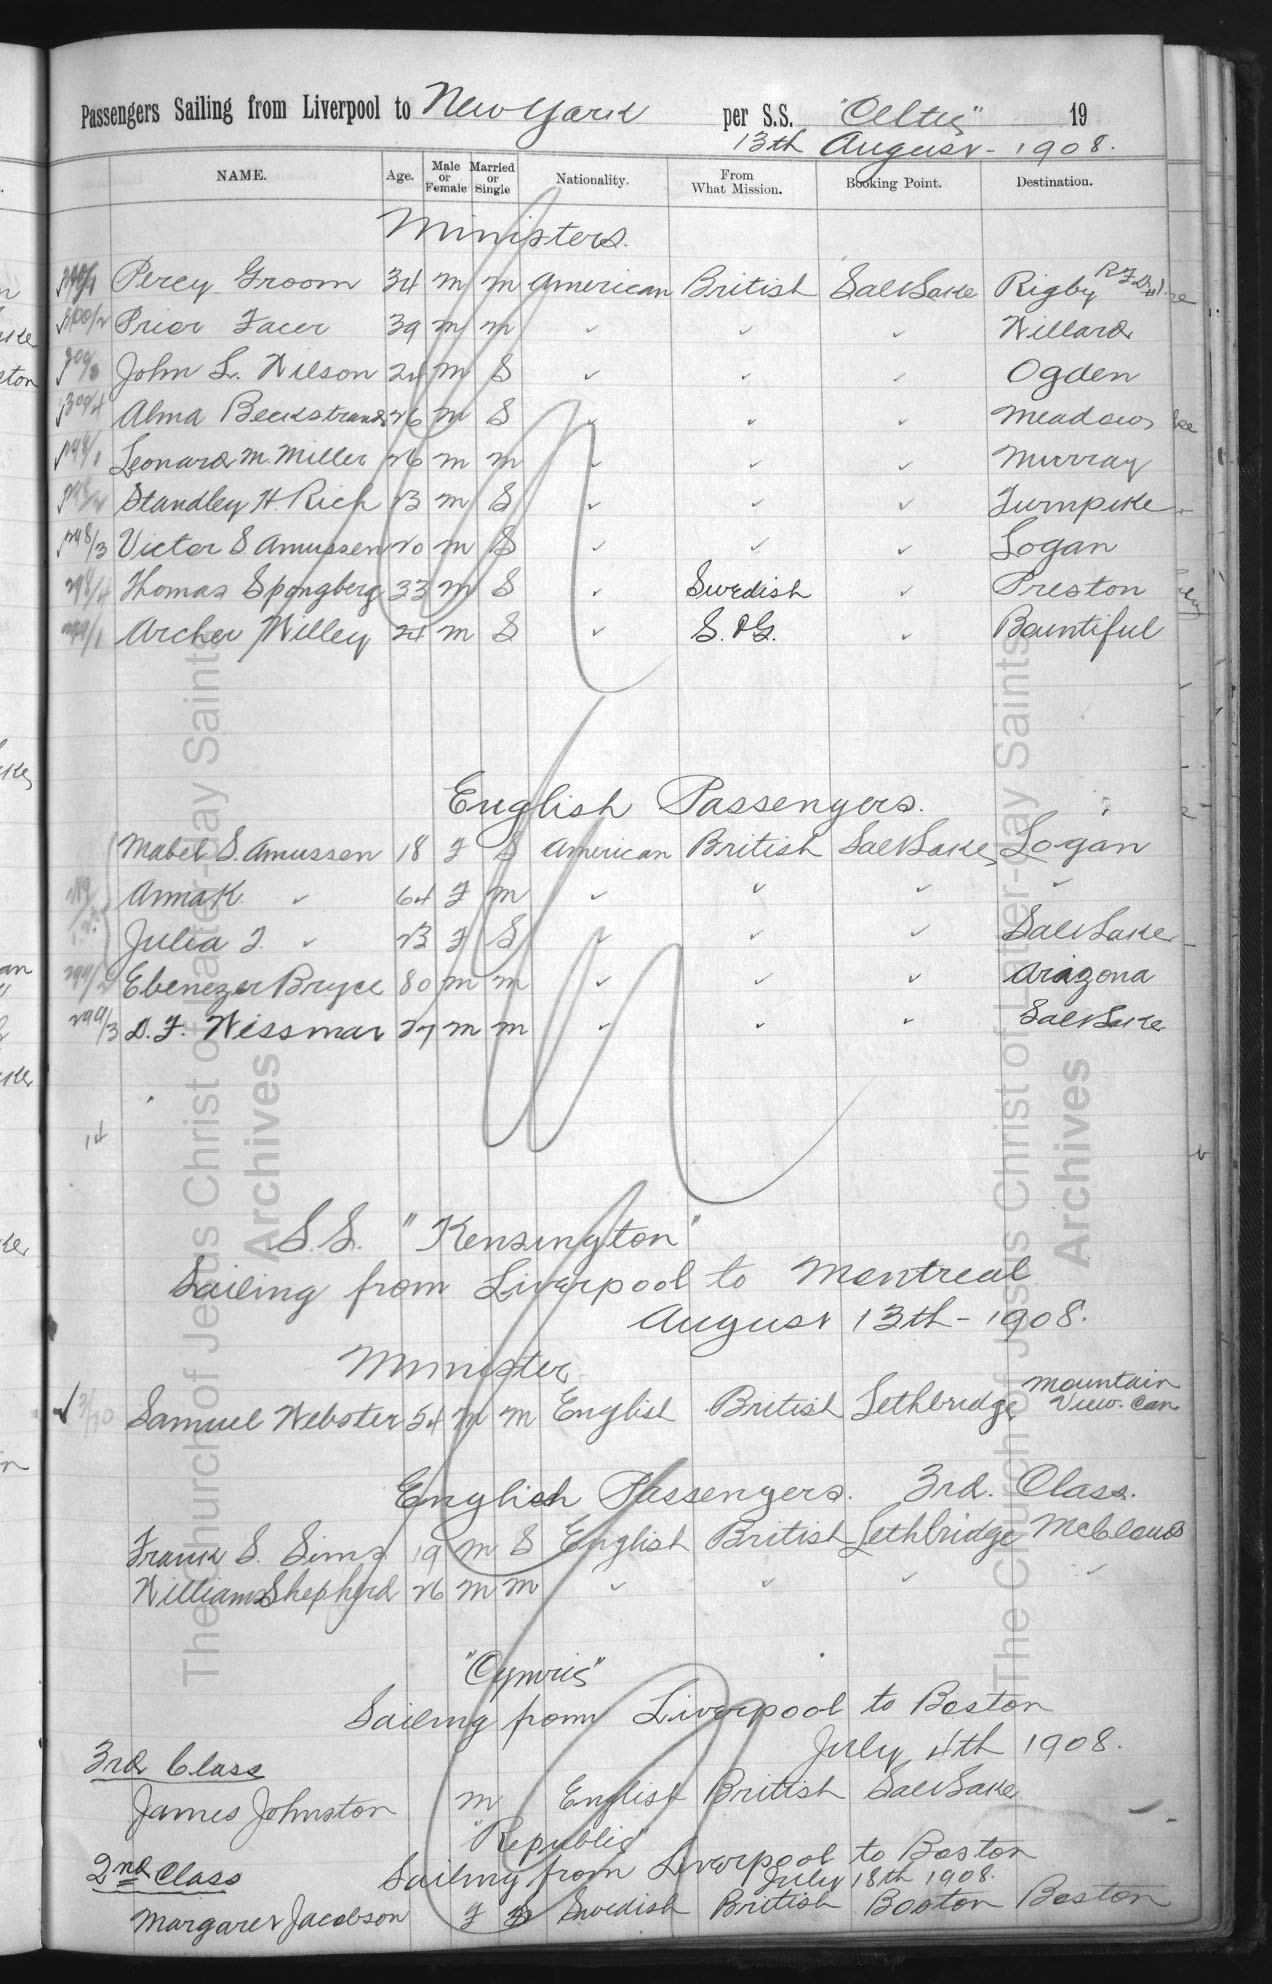 Passengers Sailing from Liverpool to New York per S.S. "Celtic" 19
13th August - 1908.
NAME. Age. Male or Female Married or Single Nationality. From What Mission. Booking Point. Destination.
Ministers.
Percy Groom 34 m m American British Salt Lake Rigby R.F.D.
300/2 Prior Facer 39 m m ✓ ✓ ✓ Willard
300/3 John L. Wilson 24 m S ✓ ✓ ✓ Ogden
300/4 Alma Beckstrand 26 m S ✓ ✓ ✓ Meadow
298/1 Leonard M. Miller 26 m m ✓ ✓ ✓ Murray
298/2 Standley H. Rich 23 m S ✓ ✓ ✓ Turnpike
298/3 Victor S Amussen 20 m S ✓ ✓ ✓ Logan
298/4 Thomas Spongberg 33 m S ✓ Swedish ✓ Preston
299/1 Archer Willey 24 m S ✓ S. & G. ✓ Bountiful
English Passengers.
Mabel S. Amussen 18 F S American British Salt Lake Logan
Anna K ✓ 64 F m ✓ ✓ ✓ ✓
Julia F. ✓ 23 F S ✓ ✓ ✓ Salt Lake
299/2 Ebenezer Bryce 80 m m ✓ ✓ ✓ Arizona
299/3 D. F. Wissmar 27 m m ✓ ✓ ✓ Salt Lake
14
S.S. "Kensington"
Sailing from Liverpool to Montreal
August 13th - 1908.
Minister
Samuel Webster 54 m m English British Lethbridge Mountain View. Can
English Passengers. 3rd. Class.
Frank S. Sims 19 m S English British Lethbridge McCloud
William Shepherd 26 m m ✓ ✓ ✓ ✓
"Cymric"
Sailing from Liverpool to Boston
July 4th 1908.
3rd Class
James Johnston m English British Salt Lake
"Republic"
Sailing from Liverpool to Boston
2nd Class July 18th 1908.
Margaret Jacobson F S Swedish British Boston Boston
The Church of Jesus Christ of Latter-day Saints
Archives
The Church of Jesus Christ of Latter-day Saints
Archives